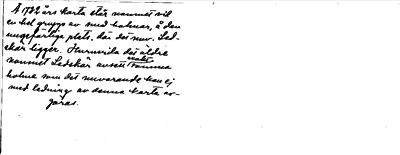 Å 1782 års karta står namnet vid
en hel grupp av små holmar, å den
ungefärliga plats, där det nuv. Led-
skär ligger. Huruvida det äldre
namnet Ledskär avsett samma
holme som det nuvarande kan ej
med ledning av denna karta av-
göras.